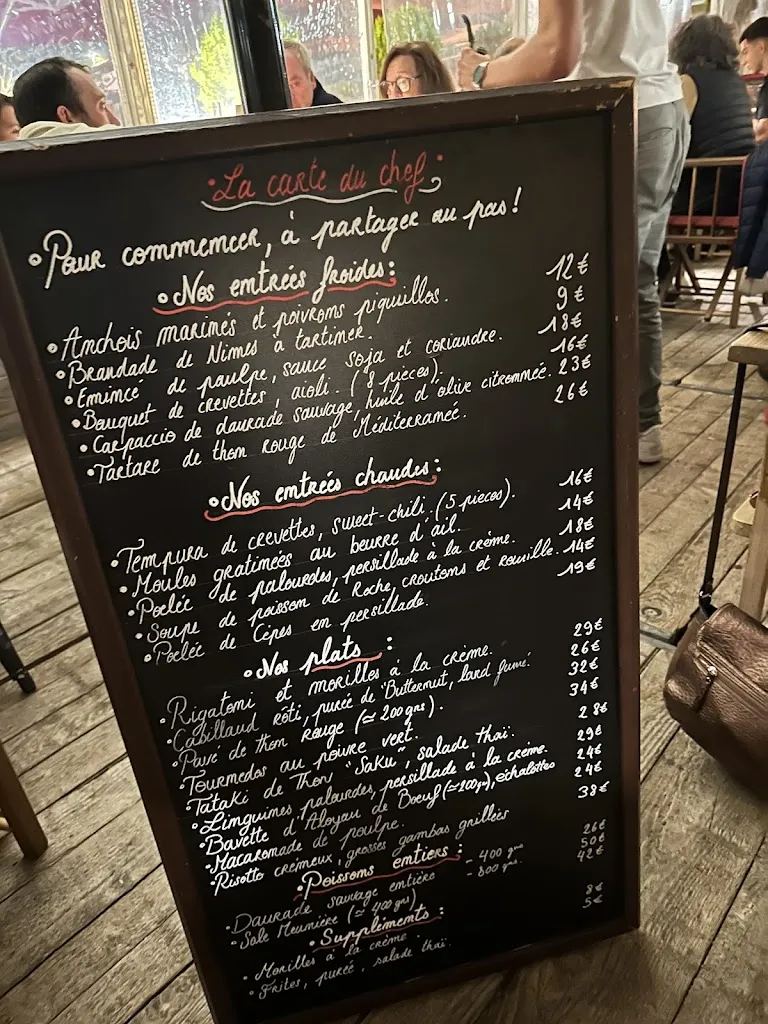 La carte du chef
• Pour commencer, à partager au pas !
• Nos entrées froides :
• Anchois marinés et poivrons piquillos. 12€
• Brandade de Nîmes à tartiner. 9€
• Emincé de poulpe, sauce soja et coriandre. 18€
• Bouquet de crevettes, aïoli. (8 pièces). 16€
• Carpaccio de daurade sauvage, huile d'olive citronnée. 23€
• Tartare de thon rouge de Méditerranée. 26€
• Nos entrées chaudes :
• Tempura de crevettes, sweet-chili. (5 pieces). 16€
• Moules gratinées au beurre d'ail. 14€
• Poêlée de palourdes, persillade à la crème. 18€
• Soupe de poisson de Roche, croutons et rouille. 14€
• Poêlée de Cèpes en persillade. 19€
• Nos plats :
• Rigatoni et morilles à la crème. 29€
• Cabillaud rôti, purée de "Butternut, lard fumé. 26€
• Pavé de thon Rouge (≃ 200 grs). 32€
• Tournedos au poivre vert. 34€
• Tataki de Thon "Saku", salade thaï. 28€
• Linguines palourdes, persillade à la crème. 29€
• Bavette d'Aloyau de Boeuf (≃200gr), échalottes 24€
• Macaronade de poulpe. 24€
• Risotto crémeux, grosses gambas grillées 38€
• Poissons entiers :
• Daurade sauvage entière - 400 grs 26€
- 800 grs. 50€
• Sole Meunière (≃ 400 grs) 42€
• Suppléments :
• Morilles à la crème 8€
• Frites, purée, salade thaï. 5€